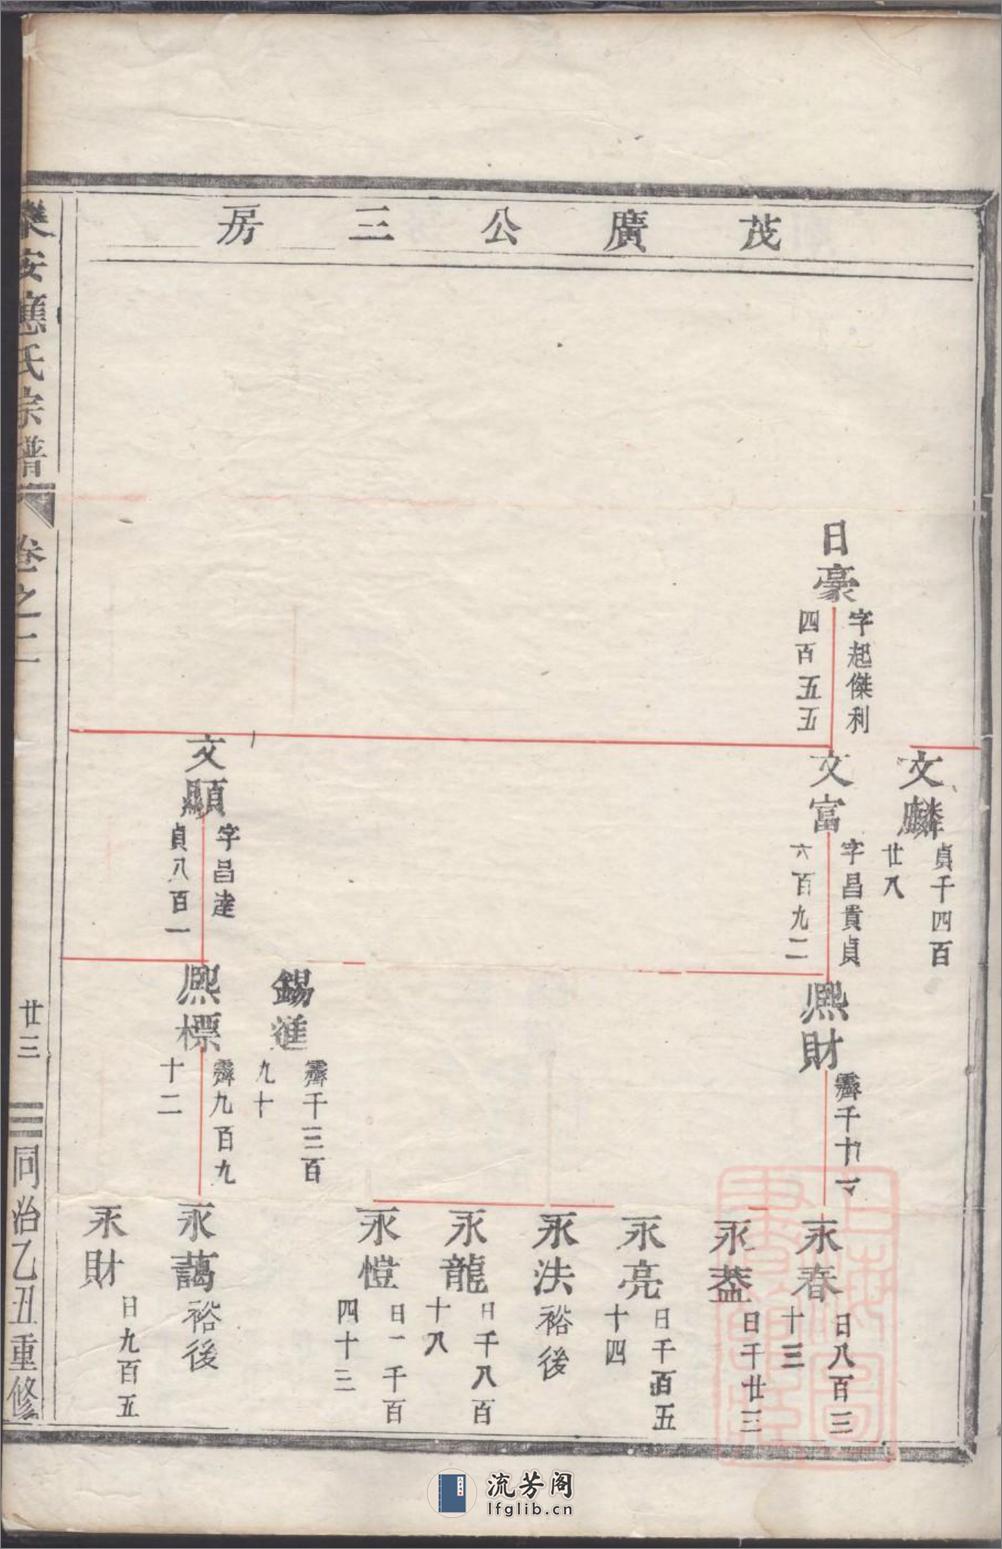 茂廣公三房
日豪
字起傑利
四百五五
文麟
貞千四百
廿八
文富
字昌貴貞
六百九二
文顯
字昌達
貞八百一
熈財
霽千九
錫進
霽千三百
九十
熈標
霽九百九
十二
永春
日八百三
十三
永葢
日千廿三
永亮
日千百五
十四
永法
裕後
永龍
日千八百
十八
永愷
日一千百
四十三
永藹
裕後
永財
日九百五
樂安應氏宗譜
卷之二
廿三
同治乙丑重修
流芳阁
lfglib.cn